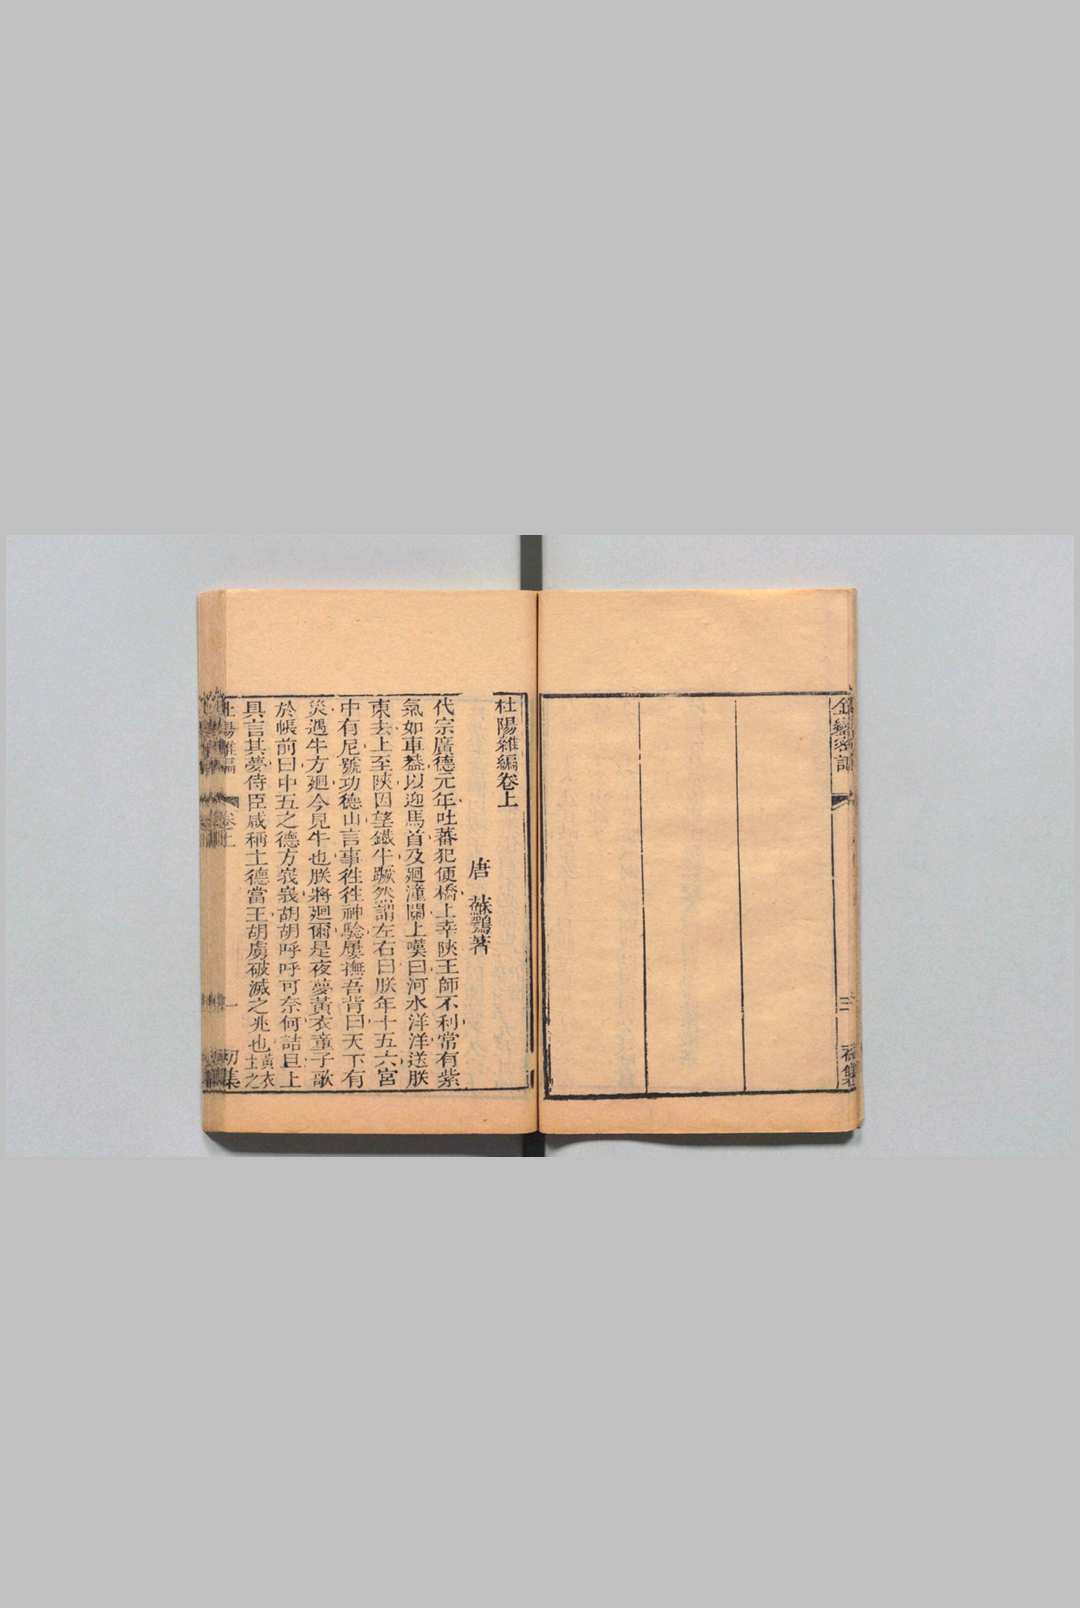 三
初集
杜陽雜編卷上
唐 蘇鶚著
代宗廣德元年吐蕃犯便橋上幸陝王師不利常有紫
氣如車葢以迎馬首及廻潼關上嘆曰河水洋洋送朕
東去上至陝因望鐵牛蹶然謂左右曰朕年十五六宮
中有尼號功德山言事徃徃神驗屢撫吾背曰天下有
災遇牛方廻今見牛也朕將廻爾是夜夢黃衣童子歌
於帳前曰中五之德方峩峩胡胡呼呼可奈何詰旦上
具言其夢侍臣咸稱土德當王胡虜破滅之兆也黃衣土之
杜陽雜編 卷上 一 初集